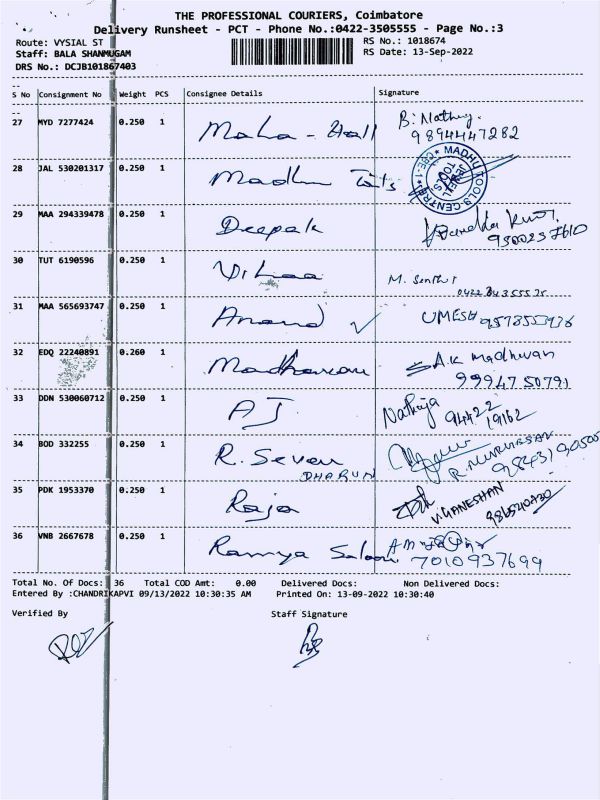 THE PROFESSIONAL COURIERS, Coimbatore
Delivery Runsheet - PCT - Phone No.:0422-3505555 - Page No.:3
Route: VYSIAL ST RS No.: 1018674
Staff: BALA SHANMUGAM RS Date: 13-Sep-2022
DRS No.: DCJB101867403
S No Consignment No Weight PCS Consignee Details Signature
27 MYD 7277424 0.250 1 Maha - Hall B. Nathiy. 9894447282
28 JAL 530201317 0.250 1 Madhu MADHU TOOLS CENTRE
29 MAA 294339478 0.250 1 Deepak
30 TUT 6190596 0.250 1 M. Senthil
31 MAA 565693747 0.250 1 Anand UMESH
32 EDQ 22240891 0.260 1 Madhavan S.A.K Madhuvan 9994750791
33 DDN 530060712 0.250 1 AJ Nathiya 94422 19162
34 BOD 332255 0.250 1 R. Seven DHARUN R. MURUGESAN
35 PDK 1953370 0.250 1 Raja V. GANESHAN
36 VNB 2667678 0.250 1 Ramya Saloon 7010937699
Total No. Of Docs: 36 Total COD Amt: 0.00 Delivered Docs: Non Delivered Docs:
Entered By :CHANDRIKAPVI 09/13/2022 10:30:35 AM Printed On: 13-09-2022 10:30:40
Verified By Staff Signature